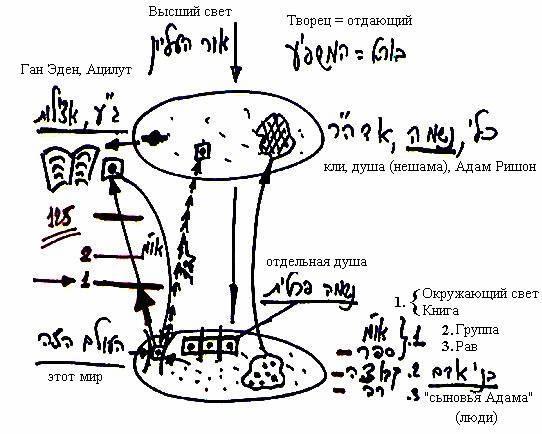 Высший свет
אור העליון
Творец = отдающий
בורא = המשפיע
Ган Эден, Ацилут
ג"ע, אצילות
כלי, נשמה, אדה"ר
кли, душа (нешама), Адам Ришон
125
2
או"מ
1
отдельная душа
נשמה פרטית
העולם הזה
этот мир
1. { Окружающий свет
Книга
2. Группа
3. Рав
או"מ } 1.
ספר
קבוצה 2.
רב 3.
בני אדם
"сыновья Адама"
(люди)